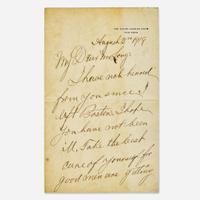 August 2nd 1909
My Dear Mr Long:
I have not heard
from you since I
left Boston. I hope
you have not been
ill. Take the best
care of yourself for
good men are getting